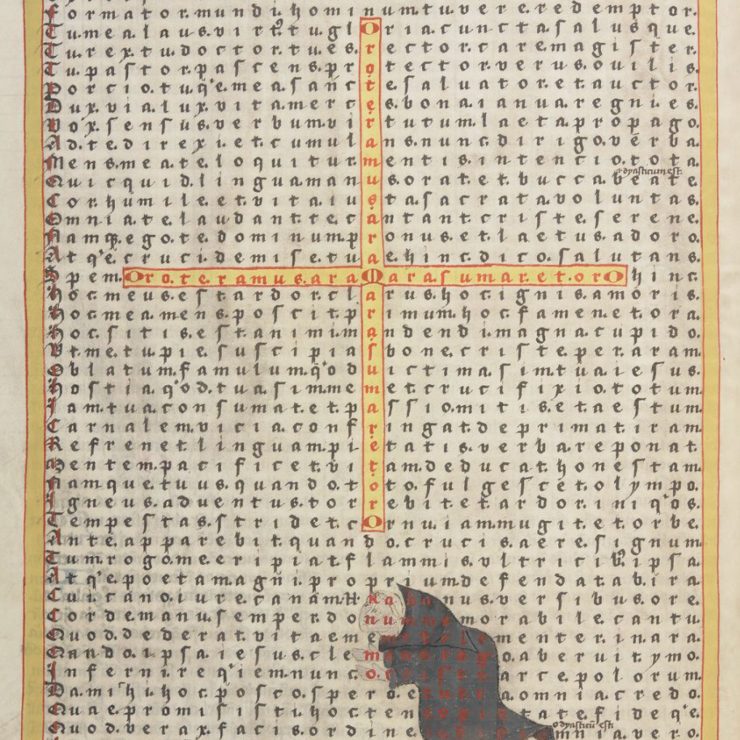 formator.mundi.hominum.tu.vere.redemptor.
Tu.mea.laus.virtus.tu.gloria.cuncta.salusque.
Tu.rex.tu.doctor.tu.es.rector.care.magister.
Tu.pastor.pascens.protector.verus.ovilis.
Portio.tu.q'e.mea.sancte.salvator.et.auctor.
Dux.via.lux.vita.merces.bona.ianua.regni.es.
Vox.sensus.verbum.virtutum.laeta.propago.
Ad.te.direxi.et.cumulans.nunc.dirigo.verba.
Mens.mea.te.loquitur.mentis.intencio.tota.
Quicquid.lingua.manus.orat.et.bucca.beate
Cor.humile.et.vita.iusta.sacrata.voluntas.
Omnia.te.laudant.te.cantant.criste.serene.
Namq;.ego.te.dominum.pronus.et.laetus.adoro.
At.q'e.cruci.demisse.tuae.hinc.dico.salutans.
Spem.Oro.te.ramus.ara.Oara.sumar.et.orO.hinc.
Hoc.meus.est.ardor.clarus.hoc.ignis.amoris.
Hoc.mea.mens.poscit.primum.hoc.famen.et.ora.
Hoc.sitis.est.animi.mandendi.magna.cupido.
Vt.me.tu.pie.suscipias.bone.criste.per.aram.
Oblatum.famulum.q'od.victima.sim.tua.iesus.
Hostia.q'od.tua.sim.memet.crucifixio.totum.
Iam.tua.consumat.et.passio.mitis.et.aestum.
Carnalem.vicia.confringat.deprimat.iram.
Refrenet.linguam.pietatis.verba.reponat.
Mentem.pacificet.vitam.deducat.honestam.
Namque.tuus.quando.toto.fulgescet.olympo.
Igneus.adventus.torrebit.et.ardor.iniq'os.
Tempestas.stridet.cornu.iam.mugit.et.orbe.
Ante.apparebit.quando.crucis.aere.signum.
Tum.rogo.me.eripiat.flammis.ultricib'.ipsa.
At.q'e.poeta.magni.proprium.defendat.ab.ira.
Cui.cano.iure.canam.Hrabanus.versibus.ore.
Corde.manu.semper.donum.memorabile.cantu.
Quod.dederat.vitae.memet.clementer.in.ara.
Quando.ipsa.iesus.clemens.amo.ab.eruit.ymo.
Inferni.requiem.nunc.arce.polorum.
Da.mihi.hoc.posco.spero.et.omnia.credo
Quae.promisisti.hoc.aetate.fide.q'e.
Quod.verax.facis.ordine